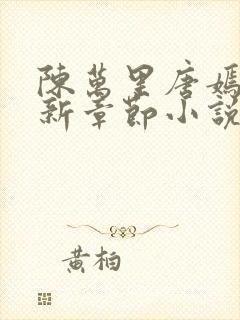 陳萬里唐嫣
新章節小說
黃柏